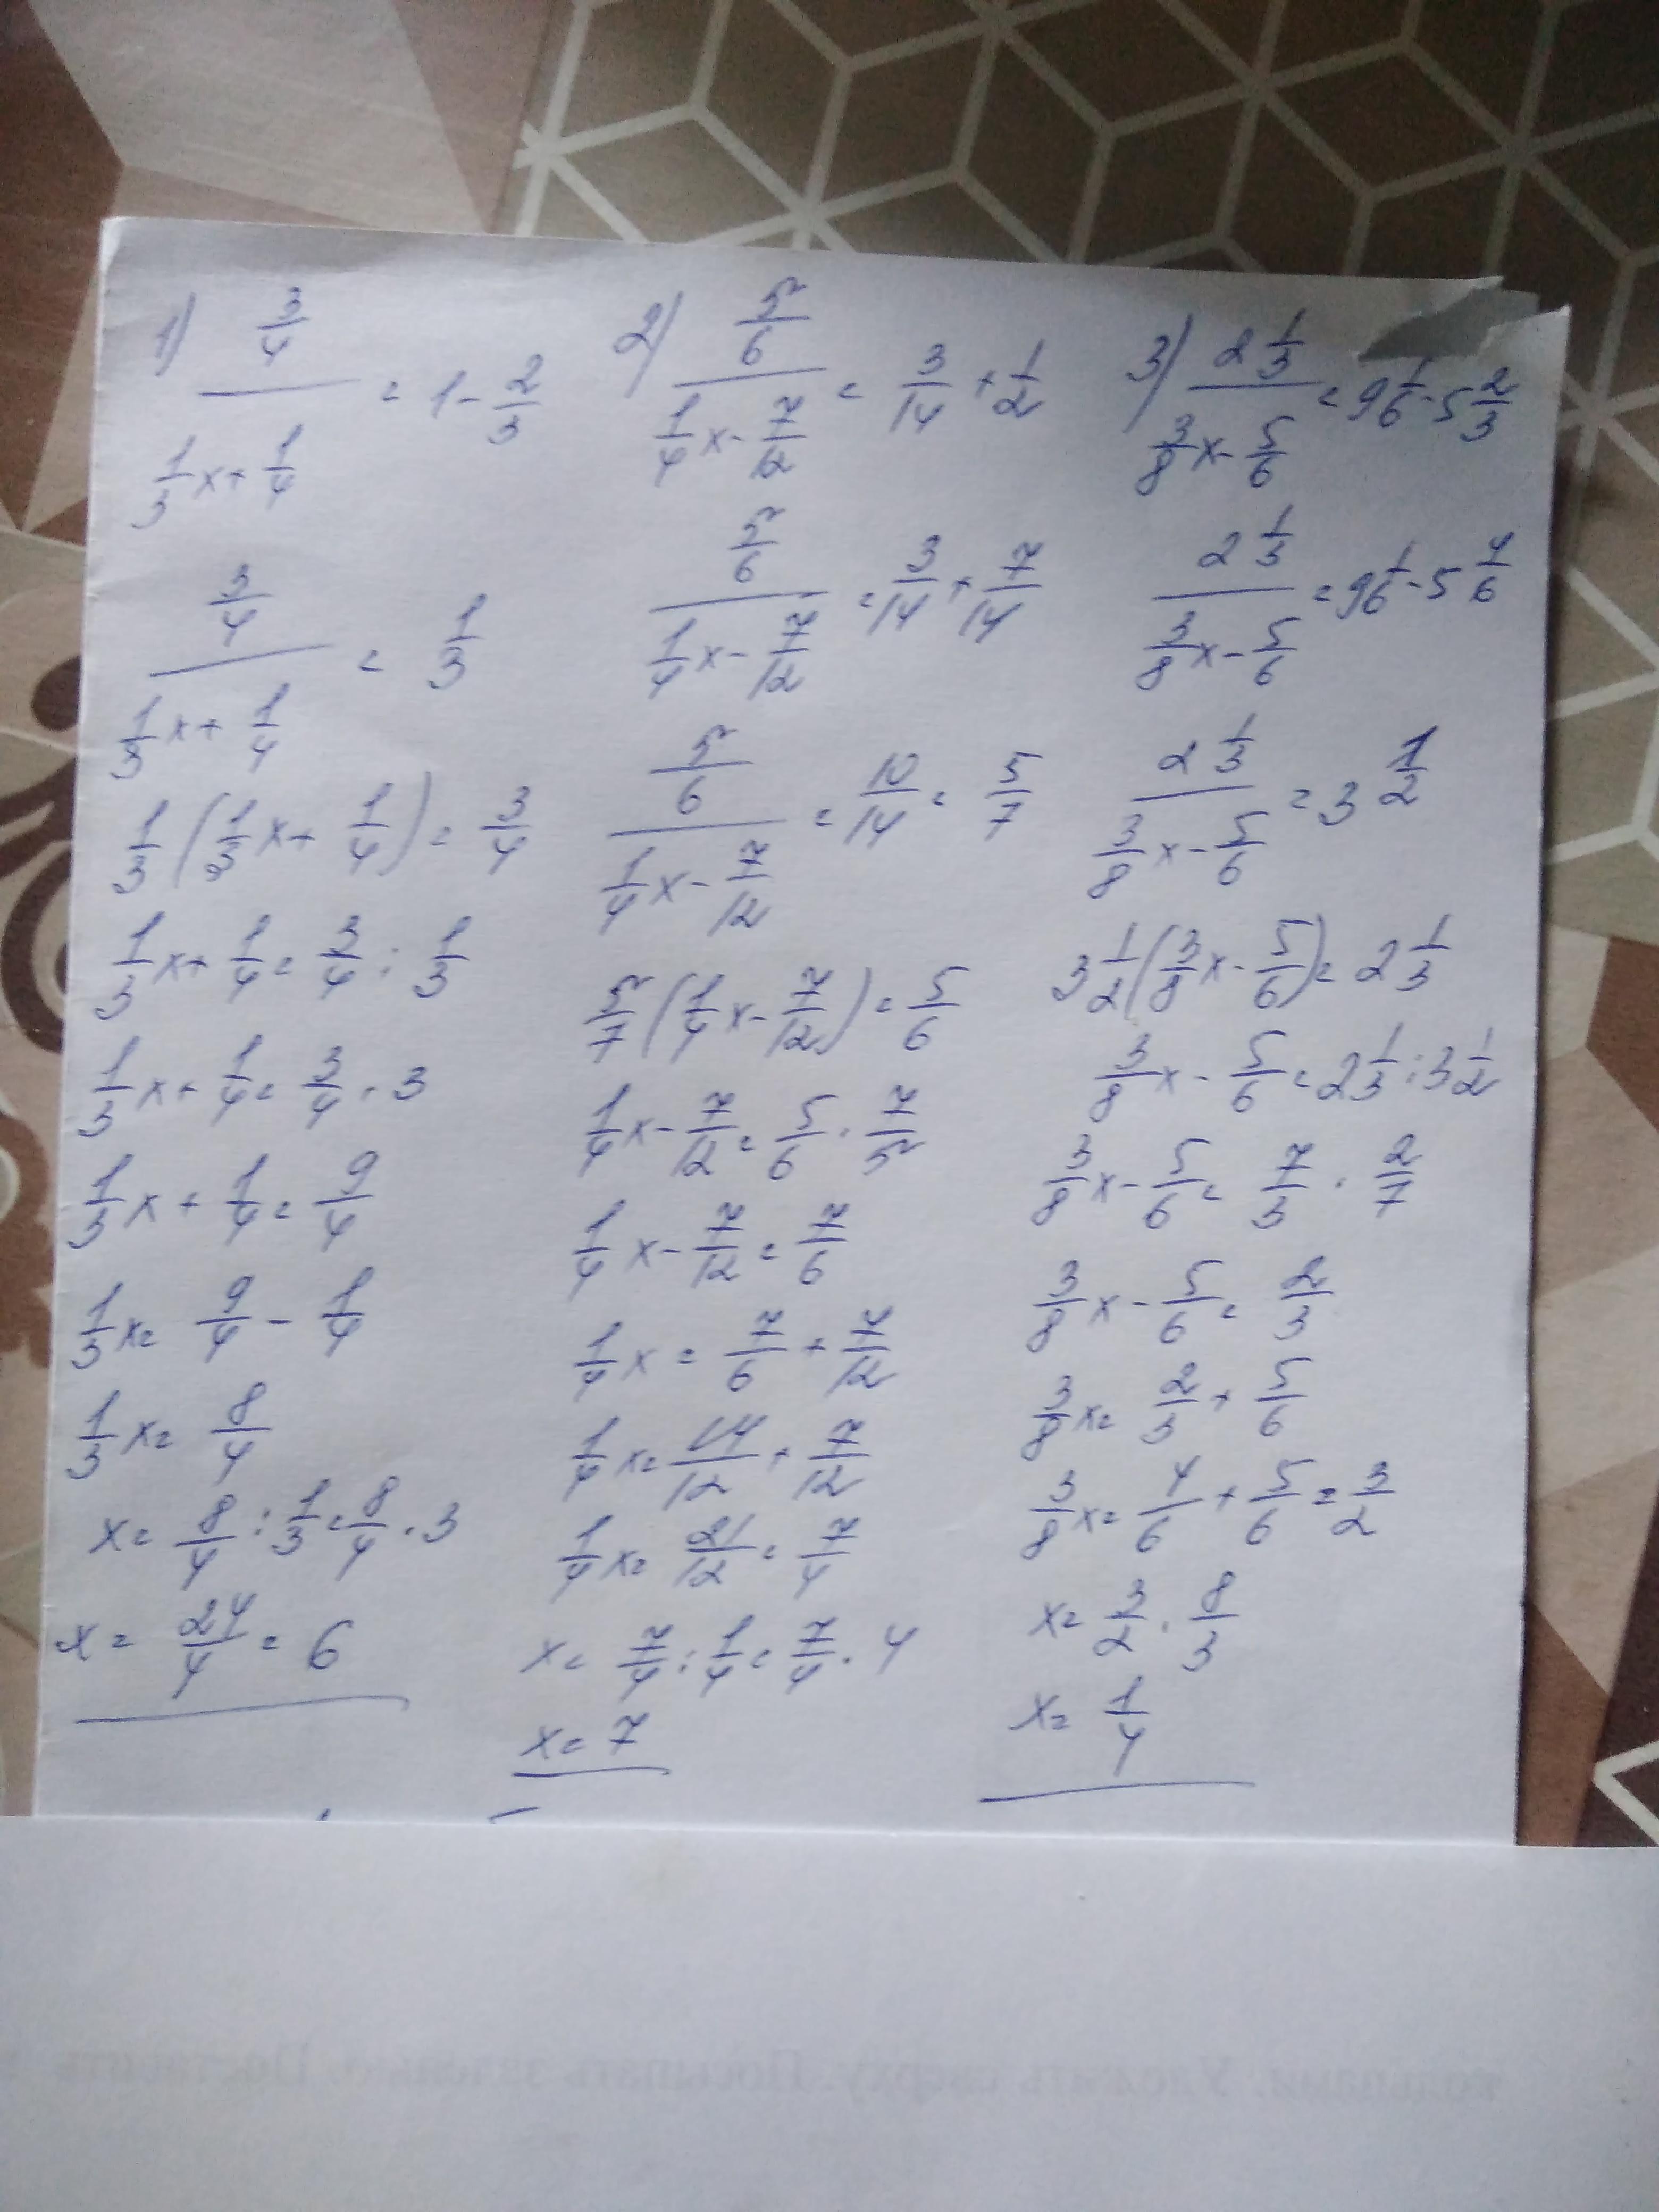 1) (3/4)/(1/3x+1/4) = 1-2/3
(3/4)/(1/3x+1/4) = 1/3
1/3(1/3x+1/4)=3/4
1/3x+1/4=3/4:1/3
1/3x+1/4=3/4·3
1/3x+1/4=9/4
1/3x=9/4-1/4
1/3x=8/4
x=8/4:1/3=8/4·3
x=24/4=6
2) (5/6)/(1/4x-7/12) = 3/14+1/2
(5/6)/(1/4x-7/12) = 3/14+7/14
(5/6)/(1/4x-7/12) = 10/14=5/7
5/7(1/4x-7/12)=5/6
1/4x-7/12=5/6·7/5
1/4x-7/12=7/6
1/4x=7/6+7/12
1/4x=14/12+7/12
1/4x=21/12=7/4
x=7/4:1/4=7/4·4
x=7
3) (2 1/3)/(3/8x-5/6) = 9 1/6-5 2/3
(2 1/3)/(3/8x-5/6) = 9 1/6-5 4/6
(2 1/3)/(3/8x-5/6) = 3 1/2
3 1/2(3/8x-5/6)=2 1/3
3/8x-5/6=2 1/3:3 1/2
3/8x-5/6=7/3·2/7
3/8x-5/6=2/3
3/8x=2/3+5/6
3/8x=4/6+5/6=3/2
x=3/2·8/3
x=1/4
кольцами. Уложить сверху. Посыпать зеленью. Поставить